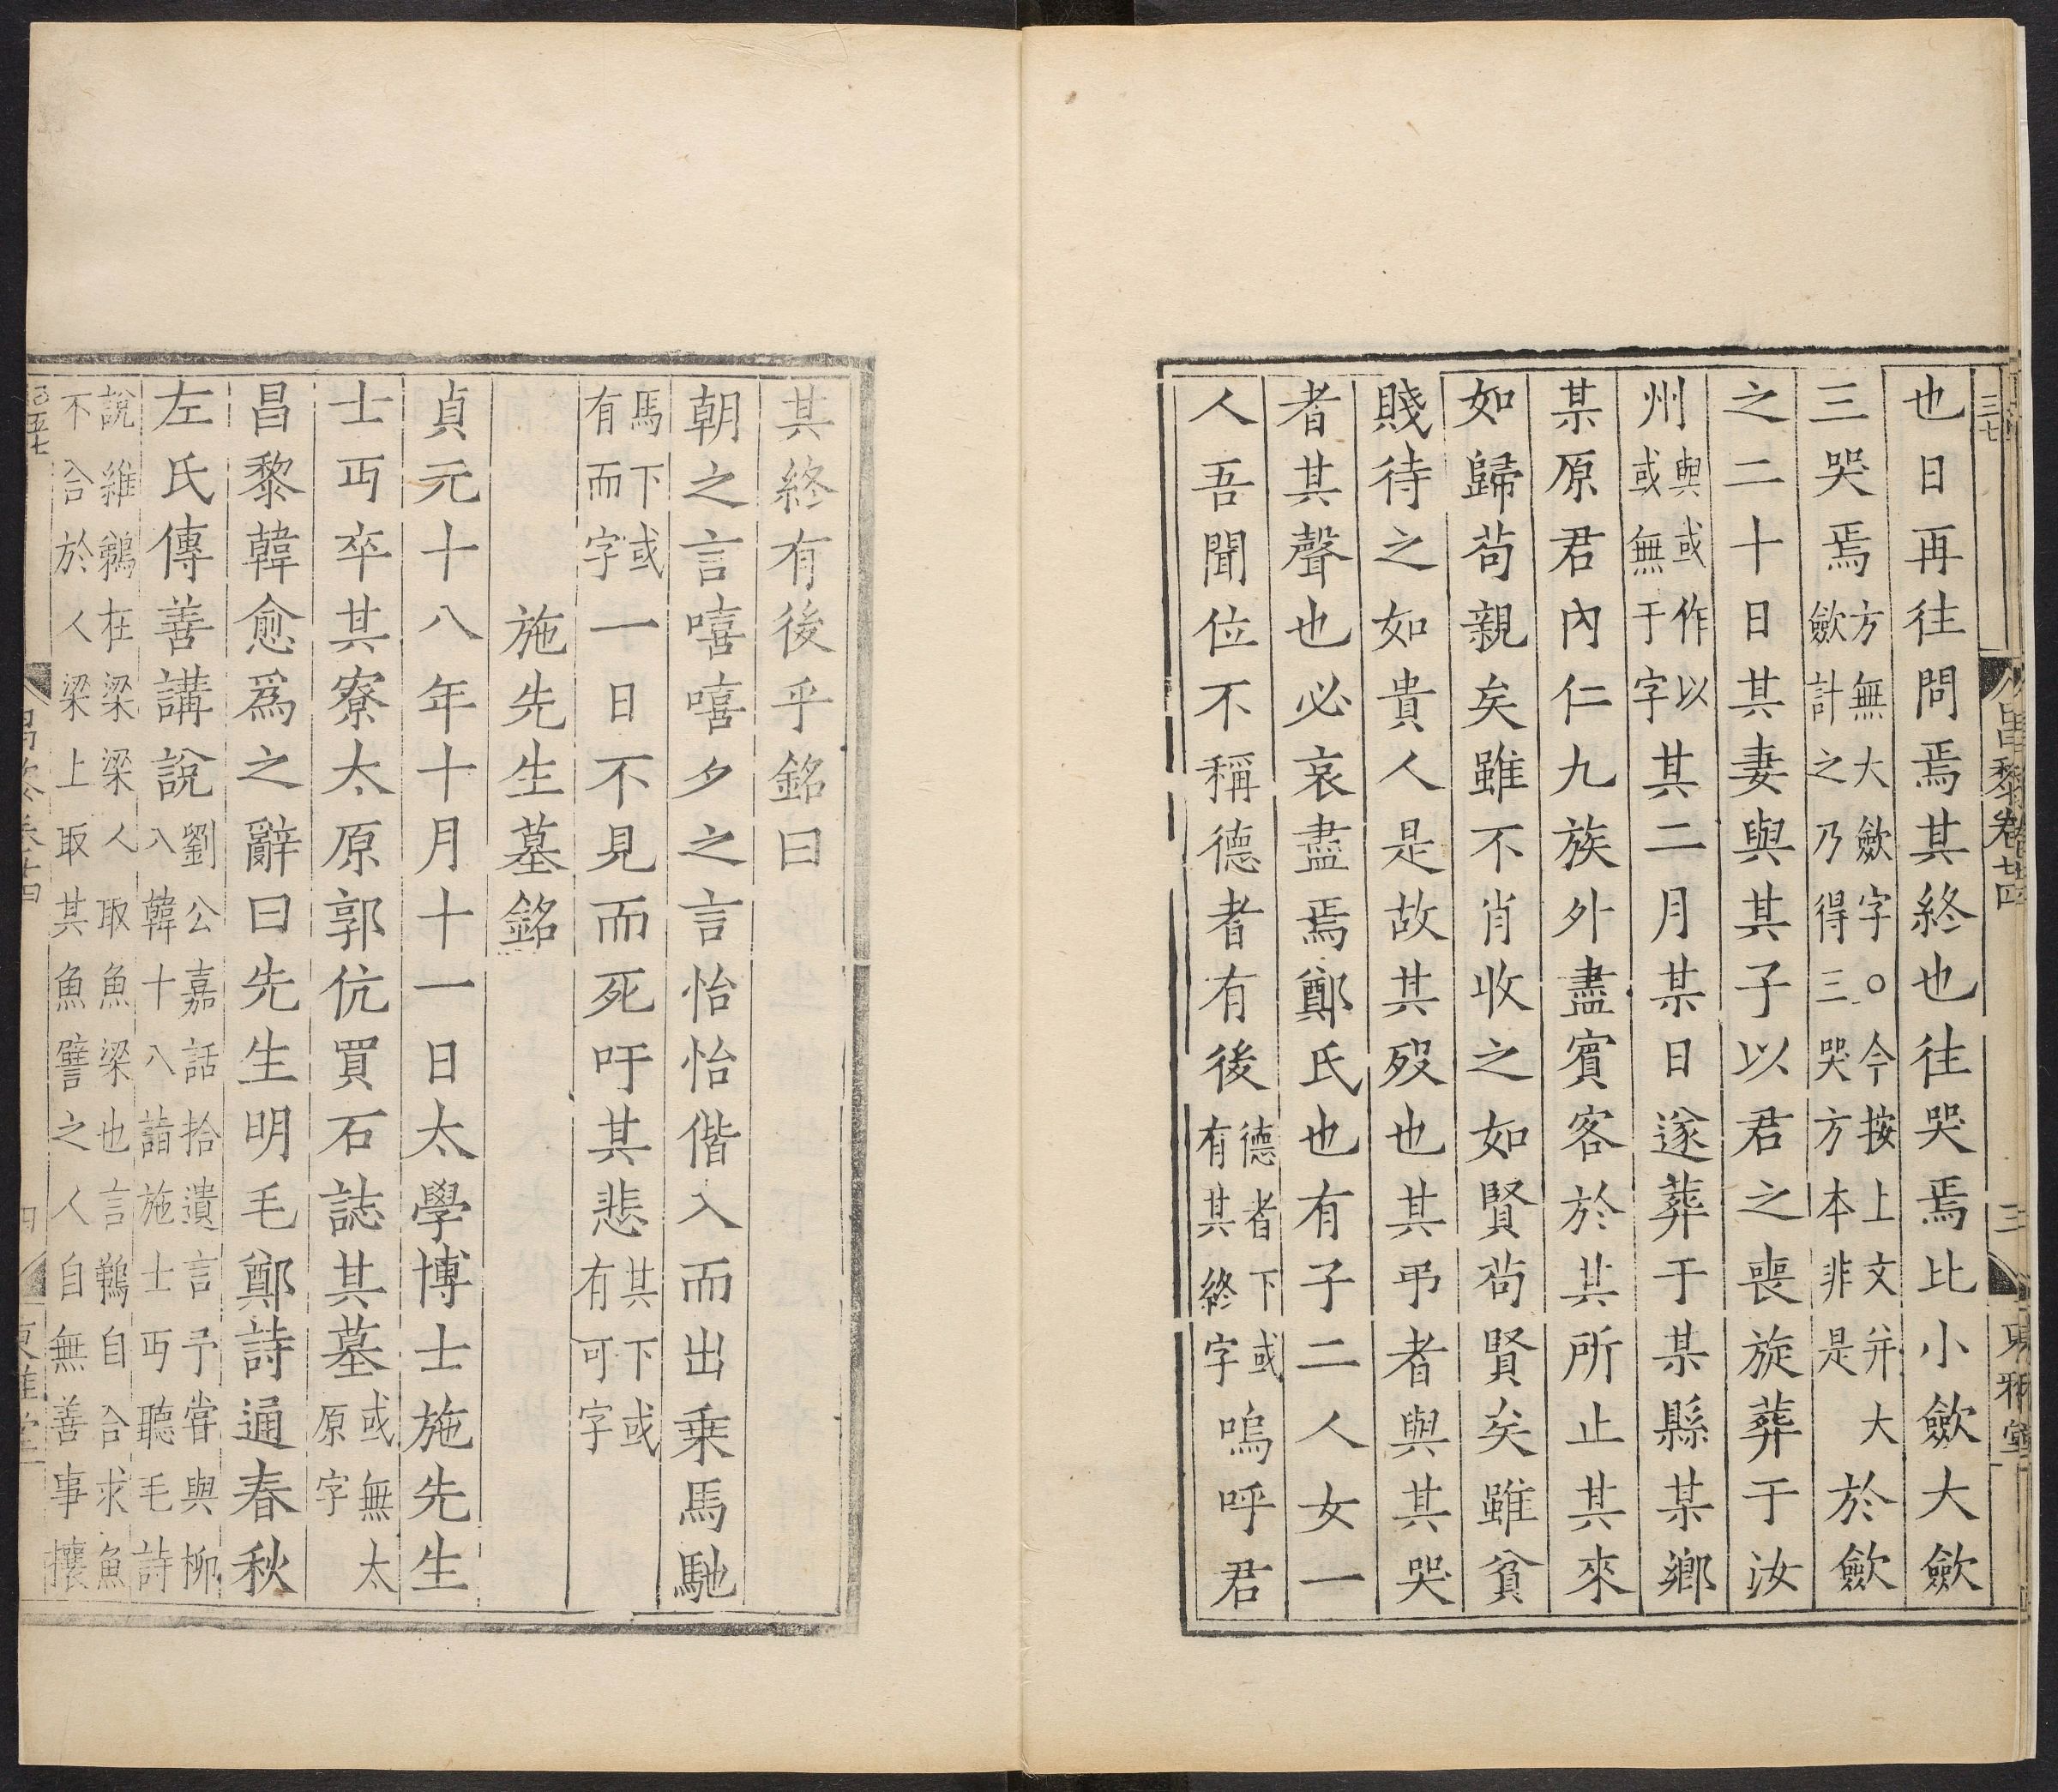 昌黎卷廿四
三
東雅堂
也日再往問焉其終也往哭焉比小斂大斂
三哭焉方無大斂字○今按上文并大斂計之乃得三哭方本非是於斂
之二十日其妻與其子以君之喪旋葬于汝
州輿或作以或無于字其二月某日遂葬于某縣某鄉
某原君內仁九族外盡賓客於其所止其來
如歸苟親矣雖不肖收之如賢苟賢矣雖貧
賤待之如貴人是故其歿也其弔者與其哭
者其聲也必哀盡焉鄭氏也有子二人女一
人吾聞位不稱德者有後德者下或有其終字嗚呼君
其終有後乎銘曰
朝之言嘻嘻夕之言怡怡偕入而出乗馬馳
馬下或有而字一日不見而死吁其悲其下或有可字
施先生墓銘
貞元十八年十月十一日太學博士施先生
士丏卒其寮太原郭伉買石誌其墓或無太原字
昌黎韓愈爲之辭曰先生明毛鄭詩通春秋
左氏傳善講說劉公嘉話拾遺言予嘗與柳八韓十八詣施士丏聽毛詩
說維鵜在梁梁人取魚梁也言鵜自合求魚
不合於人梁上取其魚譬之人自無善事攘